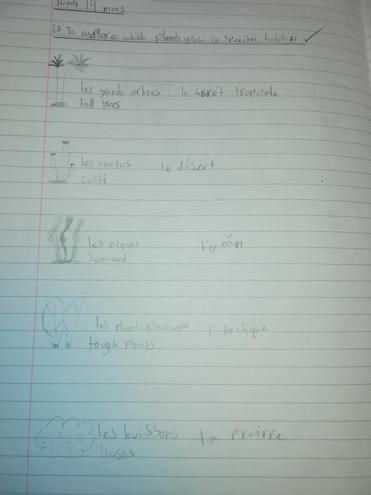 lundi 14 mars
LO To explore which plants grow in specific habitats
les grands arbres la forêt tropicale
tall trees
les cactus le désert
cacti
les algues l'océan
Seaweed
les plants l'arctique
tough plants
les buissons la prairre
bushs